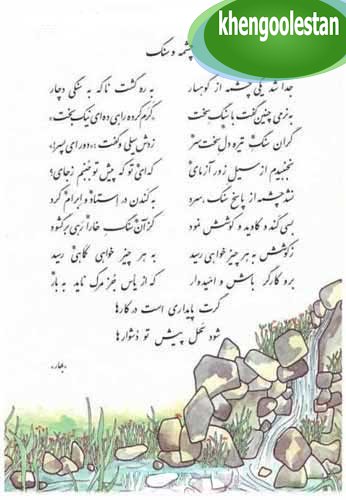 khengoolestan
چشمه و سنگ
جدا شد یکی چشمه از کوهسار به ره گشت ناگه به سنگی دچار
به نرمی چنین گفت با سنگ سخت «کرم کرده راهی ده ای نیک بخت»
گران سنگ تیره دل سخت سر زدش سیلی و گفت: «دور ای پسر!
نجنبیدم از سیل زورآزمای که ای تو که پیش تو جنبم ز جای؟»
نشد چشمه از پاسخ سنگ، سرد به کندن در استاد و ابرام کرد
بسی کند و کاوید و کوشش نمود کز آن سنگ خارا رهی برگشود
ز کوشش به هر چیز خواهی رسید به هر چیز خواهی کماهی رسید
برو کارگر باش و امیدوار که از یأس جز مرگ ناید به بار
گرت پایداری است در کارها
شود سهل پیش تو دشوارها
«بهار»